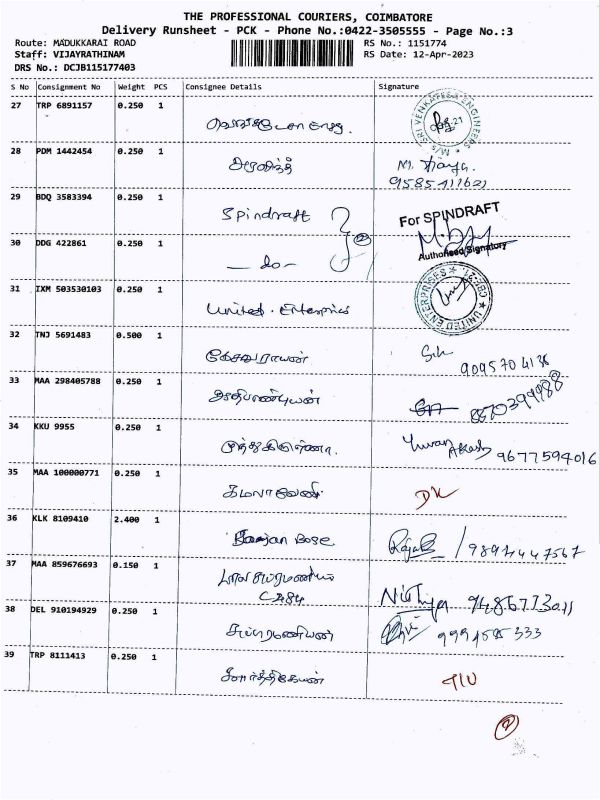 THE PROFESSIONAL COURIERS, COIMBATORE
Delivery Runsheet - PCK - Phone No.:0422-3505555 - Page No.:3
Route: MADUKKARAI ROAD RS No.: 1151774
Staff: VIJAYRATHINAM RS Date: 12-Apr-2023
DRS No.: DCJB115177403
S No Consignment No Weight PCS Consignee Details Signature
27 TRP 6891157 0.250 1
M/s. SRI VENKATESA ENGINEERS
28 PDM 1442454 0.250 1
அரவிந்த் M.
29 BDQ 3583394 0.250 1
Spindraft For SPINDRAFT
30 DDG 422861 0.250 1
— do — Authorised Signatory
31 IXM 503530103 0.250 1
United. Enterprises UNITED ENTERPRISES CBE-21
32 TNJ 5691483 0.500 1
கேசவராயன் 9095704136
33 MAA 298405788 0.250 1
ஆதிபாண்டியன் 8870399988
34 KKU 9955 0.250 1
முத்துகிருஷ்ணா. Yuvan Akash 9677594016
35 MAA 100000771 0.250 1
கமலாவேணி DK
36 KLK 8109410 2.400 1
Bose
37 MAA 859676693 0.150 1
பாலசுப்ரமணியம் Nithya
38 DEL 910194929 0.250 1
சுப்ரமணியன்
39 TRP 8111413 0.250 1
கார்த்திகேயன்